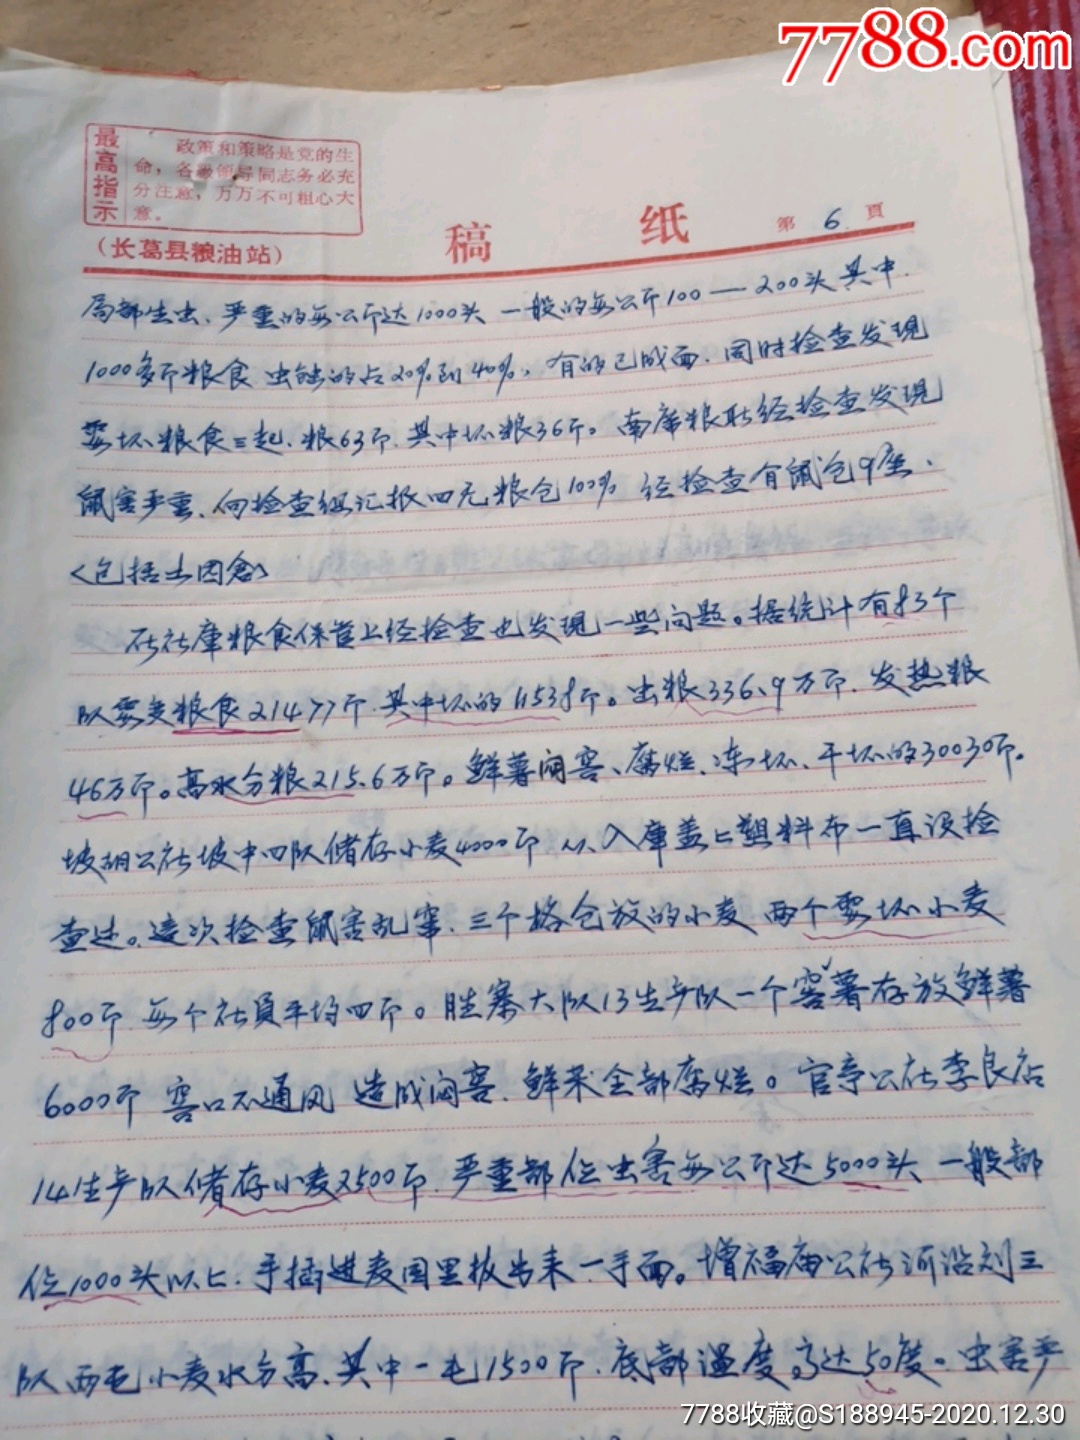 7788.com
最高指示
政策和策略是党的生
命，各级领导同志务必充
分注意，万万不可粗心大
意。
（长葛县粮油站）
稿 纸
第 6 頁
局部生虫、严重的每公斤达1000头 一般的每公斤100—200头 其中
1000多斤粮食 虫蚀的占20%到40%，有的已成面．同时检查发现
坏粮食三起．粮63斤．其中坏粮36斤。南席粮所经检查发现
鼠害严重、向检查组汇报四无粮仓100% 经检查有鼠仓9座．
<包括土囤仓>
在社库粮食保管上经检查也发现一些问题。据统计有83个
队 变粮食21477斤 其中坏的11538斤。虫粮336.9万斤．发热粮
46万斤。高水分粮215.6万斤。鲜薯闷窖、腐烂、冻坏、干坏的30030斤．
坡胡公社坡中四队储存小麦4000斤 从入库盖上塑料布一直没检
查过。这次检查鼠害乱窜、三个格仓放的小麦 两个 坏小麦
800斤 每个社員平均四斤。胜寨大队13生产队一个窖薯存放鲜薯
6000斤 窖口不通风 造成闷窖、鲜菜全部腐烂。官亭公社李良店
14生产队储存小麦2500斤．严重部位虫害每公斤达5000头 一般部
位1000头以上．手插进麦囤里拔出来一手面。增福庙公社 沿刘三
队两 小麦水分高．其中一 1500斤．底部温度高达50度。虫害严
7788收藏@S188945-2020.12.30